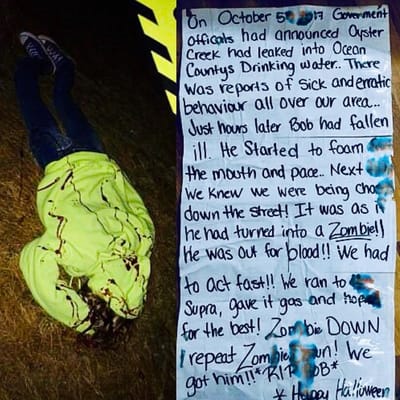 On October 5 2017 Goverment
officals had announced Oyster
Creek had leaked into Ocean
Countys Drinking water.. There
was reports of sick and erratic
behaviour all over our area..
Just hours later Bob had fallen
ill. He started to foam
the mouth and pace.. Next
we knew we were being
down the street! It was as
he had turned into a Zombie!!
He was out for blood!! We had
to act fast!! We ran to
Supra, gave it gas and
for the best! Zombie DOWN
I repeat Zombie Down! We
got him!! *RIP BOB*
* Happy Halloween